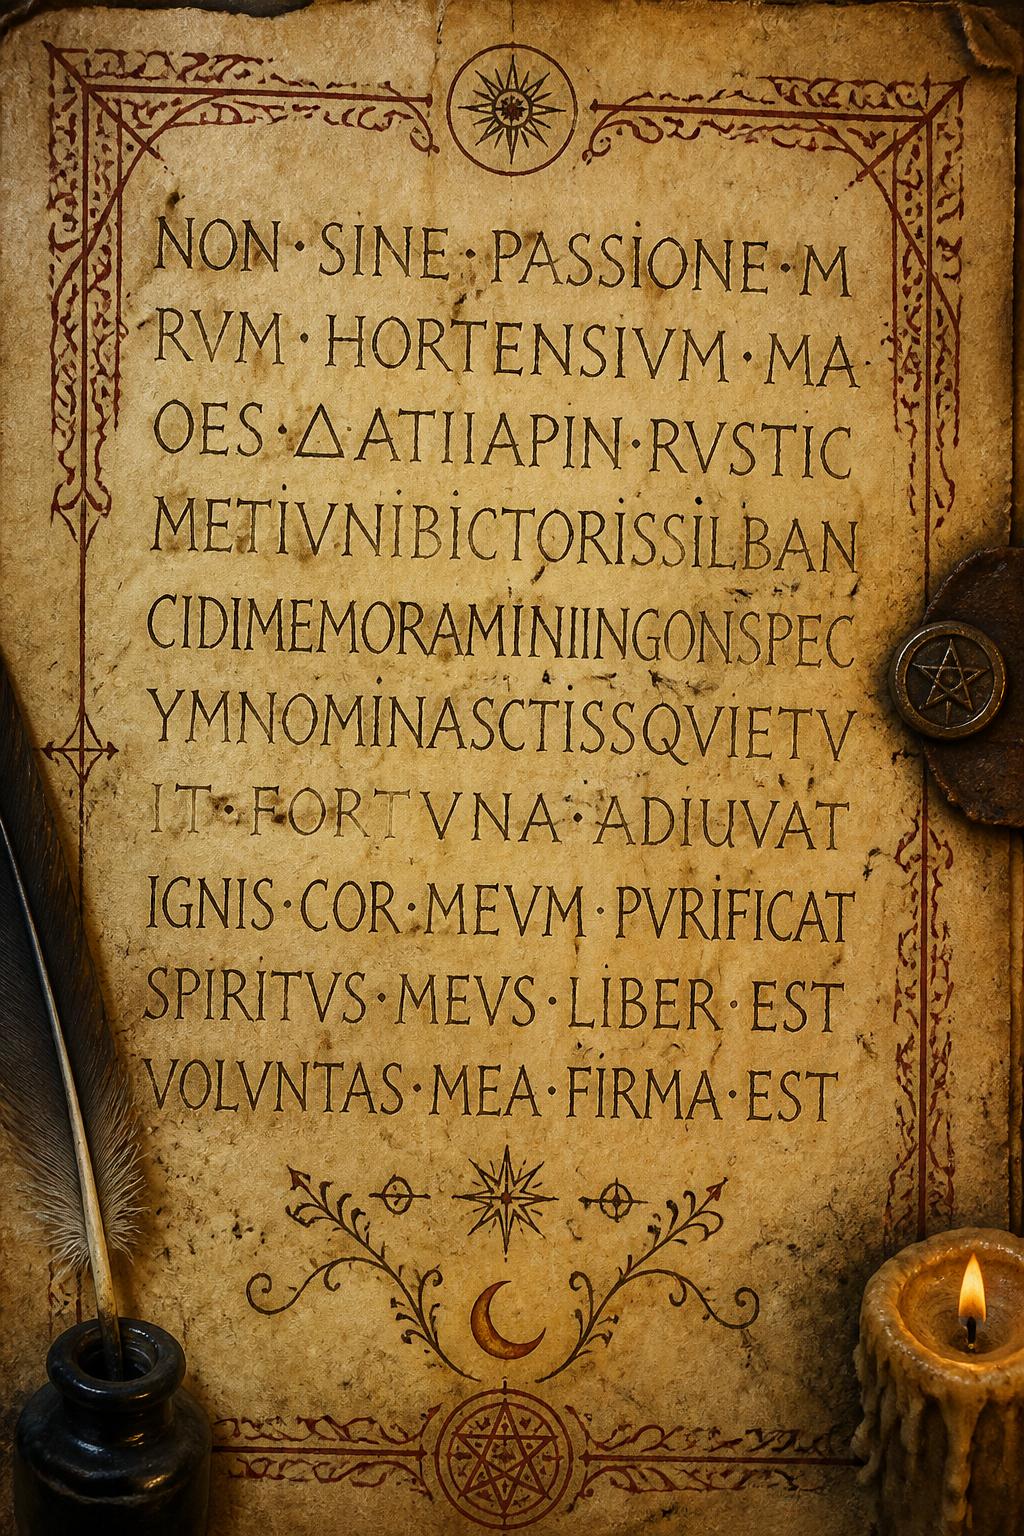 NON · SINE · PASSIONE · M
RVM · HORTENSIVM · MA ·
OES · ΔATIIAPIN · RVSTIC
METIVNIBICTORISSILBAN
CIDIMEMORAMINIIINGONSPEC
YMNOMINASCTISSQVIETV
IT · FORTVNA · ADIUVAT
IGNIS · COR · MEVM · PVRIFICAT
SPIRITVS · MEVS · LIBER · EST
VOLVNTAS · MEA · FIRMA · EST